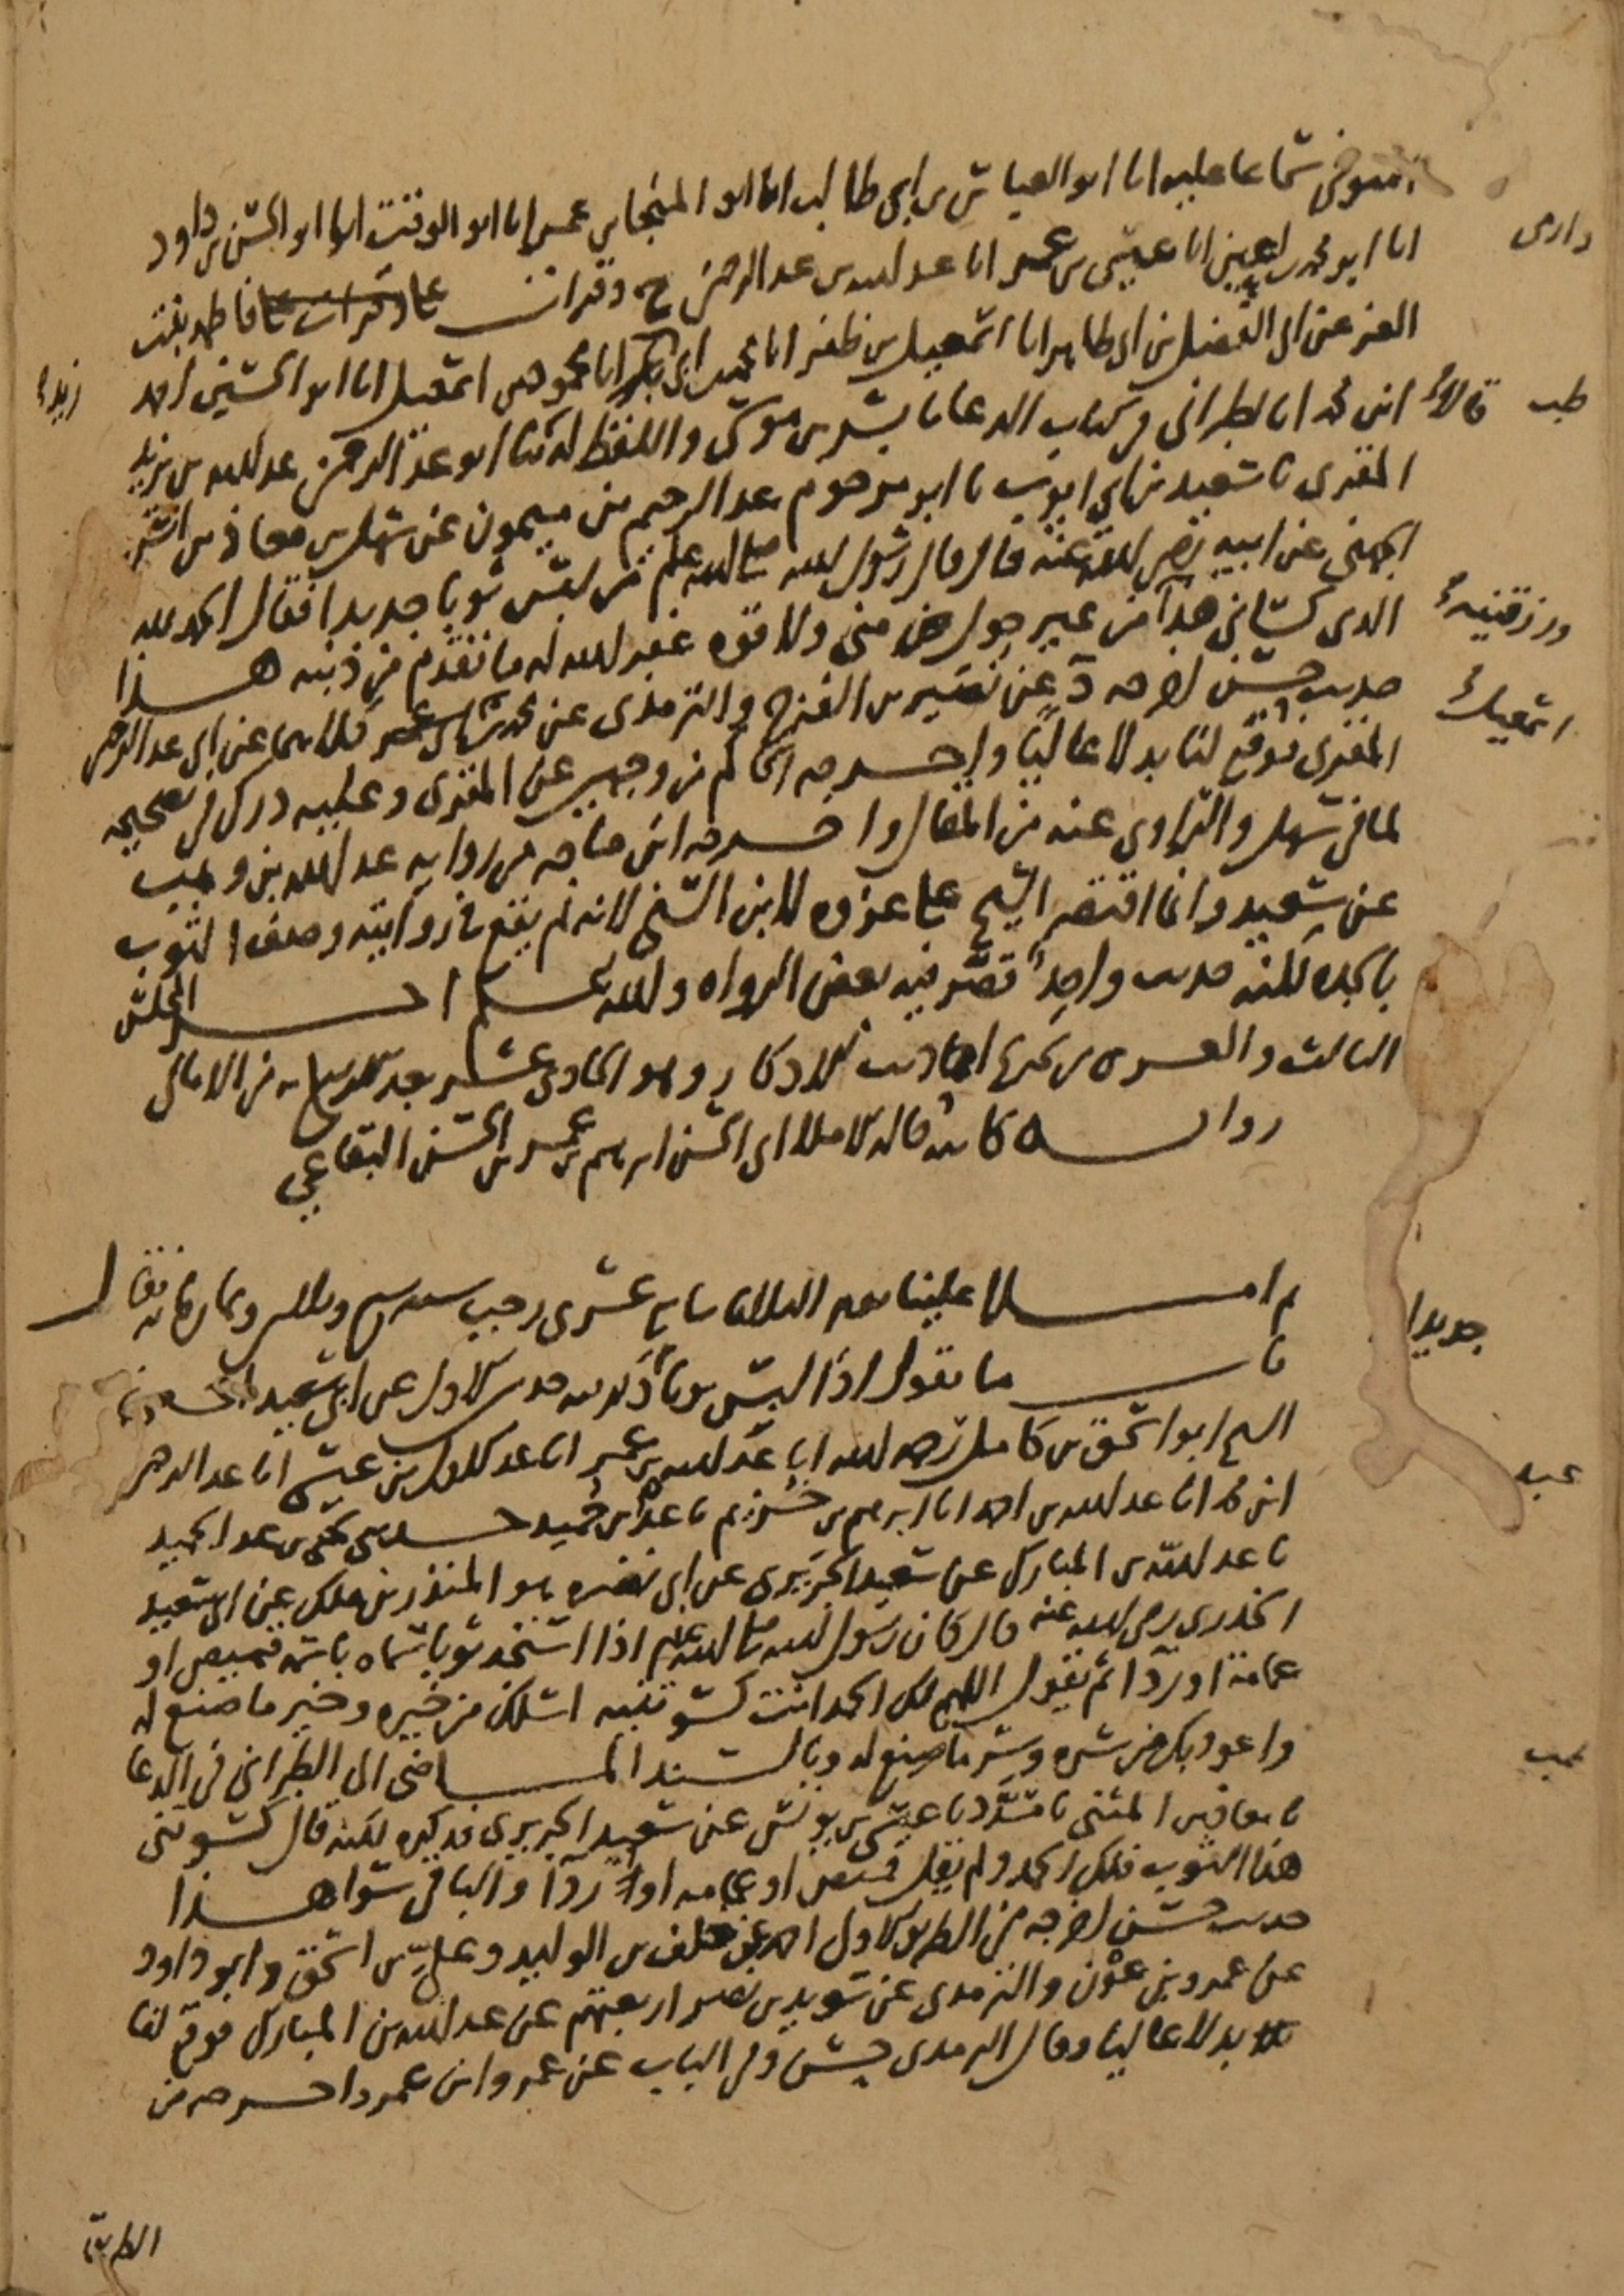 سماعا عليه انا ابو العباس بن ابي طالب انا ابو المنجا بن عمر انا ابو الوقت انا ابو الحسن بن داود
دارمى
انا ابو محمد بن اعين انا عيسى بن عمر انا عبد الله بن عبد الرحمن ح وقرات على فاطمه بنت
العز عن ابى الفضل بن ابى طاهر انا اسمعيل بن ظفر انا محمد بن ابى بكر انا محمود بن اسمعيل انا ابو الحسين احمد
طب قالا
ابن محمد انا الطبرانى فى كتاب الدعا نا بشر بن موسى واللفظ له نا ابو عبد الرحمن عبد الله بن يزيد
المقرى نا سعيد بن ابي ايوب نا ابو مرحوم عبد الرحيم بن ميمون عن سهل بن معاذ بن انس
الجهنى عن ابيه رضى الله عنه قال قال رسول الله صلى الله عليه وسلم من لبس ثوبا جديدا فقال الحمد لله
ورزقنيه
الذى كسانى هذا من غير حول منى ولا قوه غفر الله له ما تقدم من ذنبه هذا
اسمعيل
حديث حسن اخرجه د عن نصير بن الفرج والترمذى عن محمد بن كلاهما عن ابى عبد الرحمن
المقرى فوقع لنا بدلا عاليا واخرجه الحاكم من وجهين عن المقرى وعليه درك فى تصحيحه
لما فى سهل والراوى عنه من المقال واخرجه ابن ماجه من روايه عبد الله بن وهب
عن سعيد وانما اقتصر الشيخ على عزوه لابن السنى لانه لم يقع فى روايته وصف الثوب
بالجده لكنه حديث واحد قصر فيه بعض الرواه والله اعلم اخر المجلس
الثالث والعشرين من تخريج احاديث الاذكار وهو الحادى عشر بعد من الامالى
روايه كاتبه ابى الحسن ابرهيم بن عمر بن الحسن البقاعي
ثم املا علينا يوم الثلاثا سابع عشرى رجب سنه سبع وثلثين وثمانمايه فقال
جديدا
باب ما يقول اذا لبس ثوبا ذكر فيه حديث الاول عن ابى سعيد
الشيخ ابو اسحق بن كامل رحمه الله انا عبد الله بن عمر انا عبد الاول بن عيسى انا عبد الرحمن
عبد
ابن محمد انا عبد الله بن احمد انا ابرهيم بن خزيم نا عبد بن حميد حدثنى يحيى بن عبد الحميد
نا عبد الله بن المبارك عن سعيد الجريرى عن ابى نضره هو المنذر بن ملك عن ابى سعيد
الخدرى رضى الله عنه قال كان رسول الله صلى الله عليه وسلم اذا استجد ثوبا سماه باسمه قميص او
عمامة او ردا ثم يقول اللهم لك الحمد انت كسوتنيه اسئلك من خيره وخير ما صنع له
واعوذ بك من شره وشر ما صنع له وبالسند الماضى الى الطبرانى فى الدعا
نا معاذ بن المثنى نا مسدد نا عيسى بن يونس عن سعيد الجريرى فذكره لكنه قال كسوتنى
هذا الثوب فلك الحمد ولم يقل قميص او عمامه او ردا والباقى سوا هذا
حديث حسن اخرجه من الطريق الاول احمد عن خلف بن الوليد وعلي بن اسحق وابو داود
عن عمرو بن عون والترمذى عن سويد بن نصر اربعتهم عن عبد الله بن المبارك فوقع لنا
بدلا عاليا وقال الترمذى حسن وفى الباب عن عمر وابن عمر واخرجه من